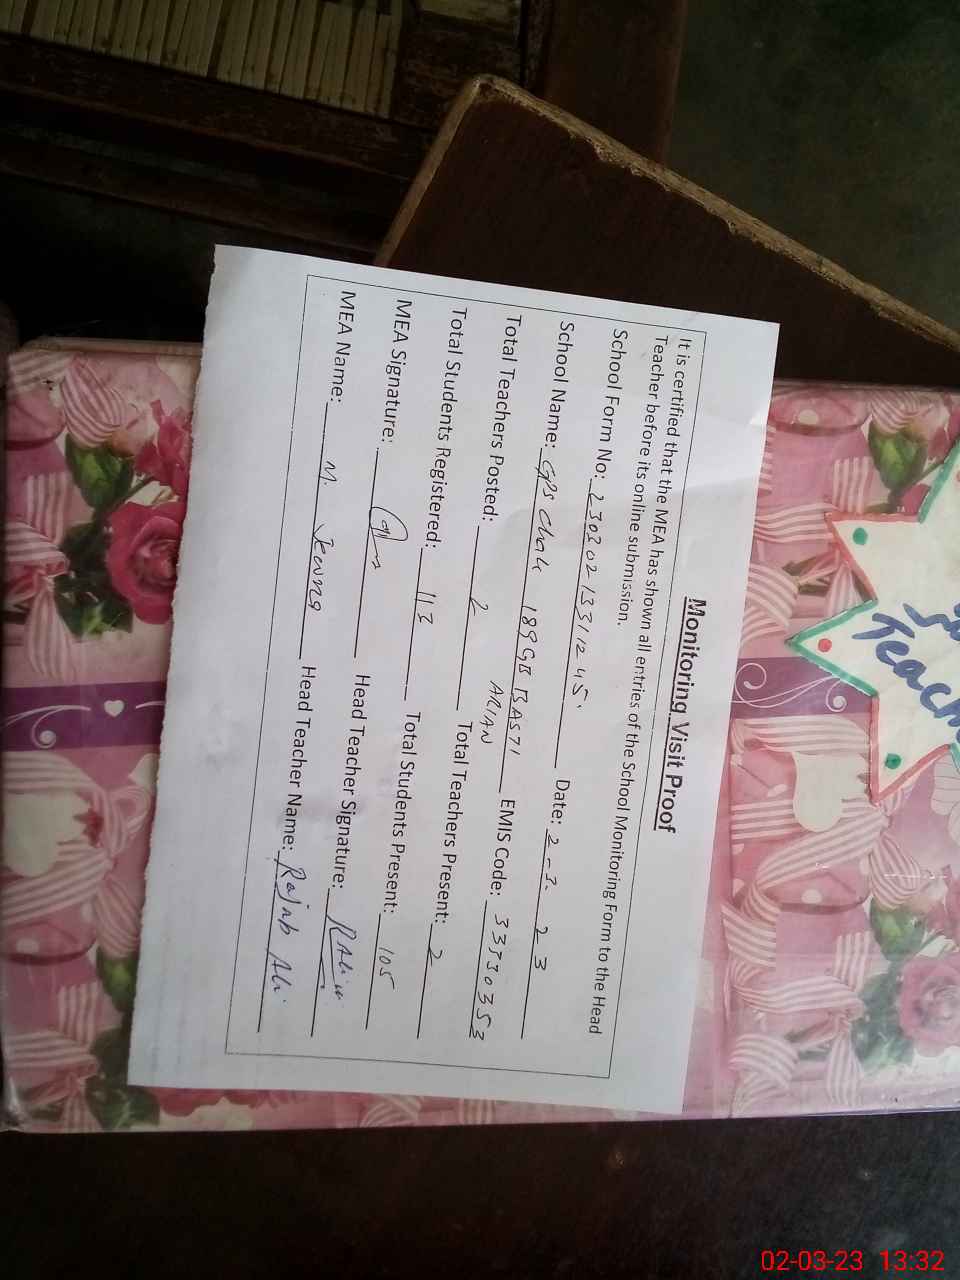 Monitoring Visit Proof
It is certified that the MEA has shown all entries of the School Monitoring Form to the Head
Teacher before its online submission.
School Form No: 23030213311245. Date: 2-3. 23
School Name: GPS Chak 189 GB BASTI ARIAN EMIS Code: 33330353
Total Teachers Posted: 2 Total Teachers Present: 2
Total Students Registered: 113 Total Students Present: 105
MEA Signature: Head Teacher Signature: R Ali
MEA Name: M. Head Teacher Name: Rajab Ali
Teach
02-03-23 13:32